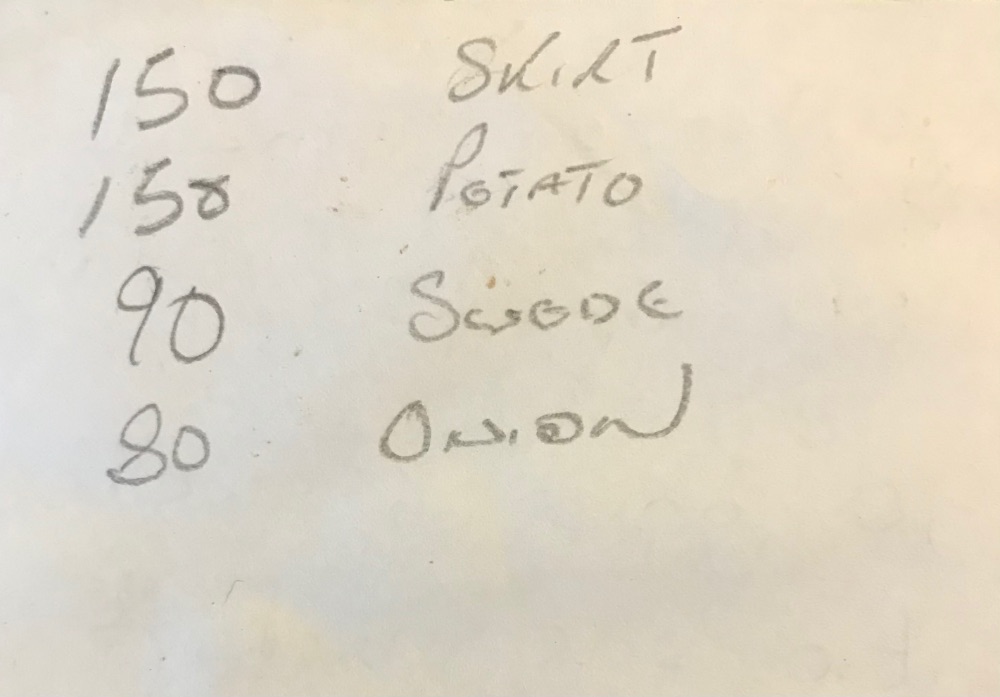 150 SKIRT
150 POTATO
90 SWEDE
80 ONION